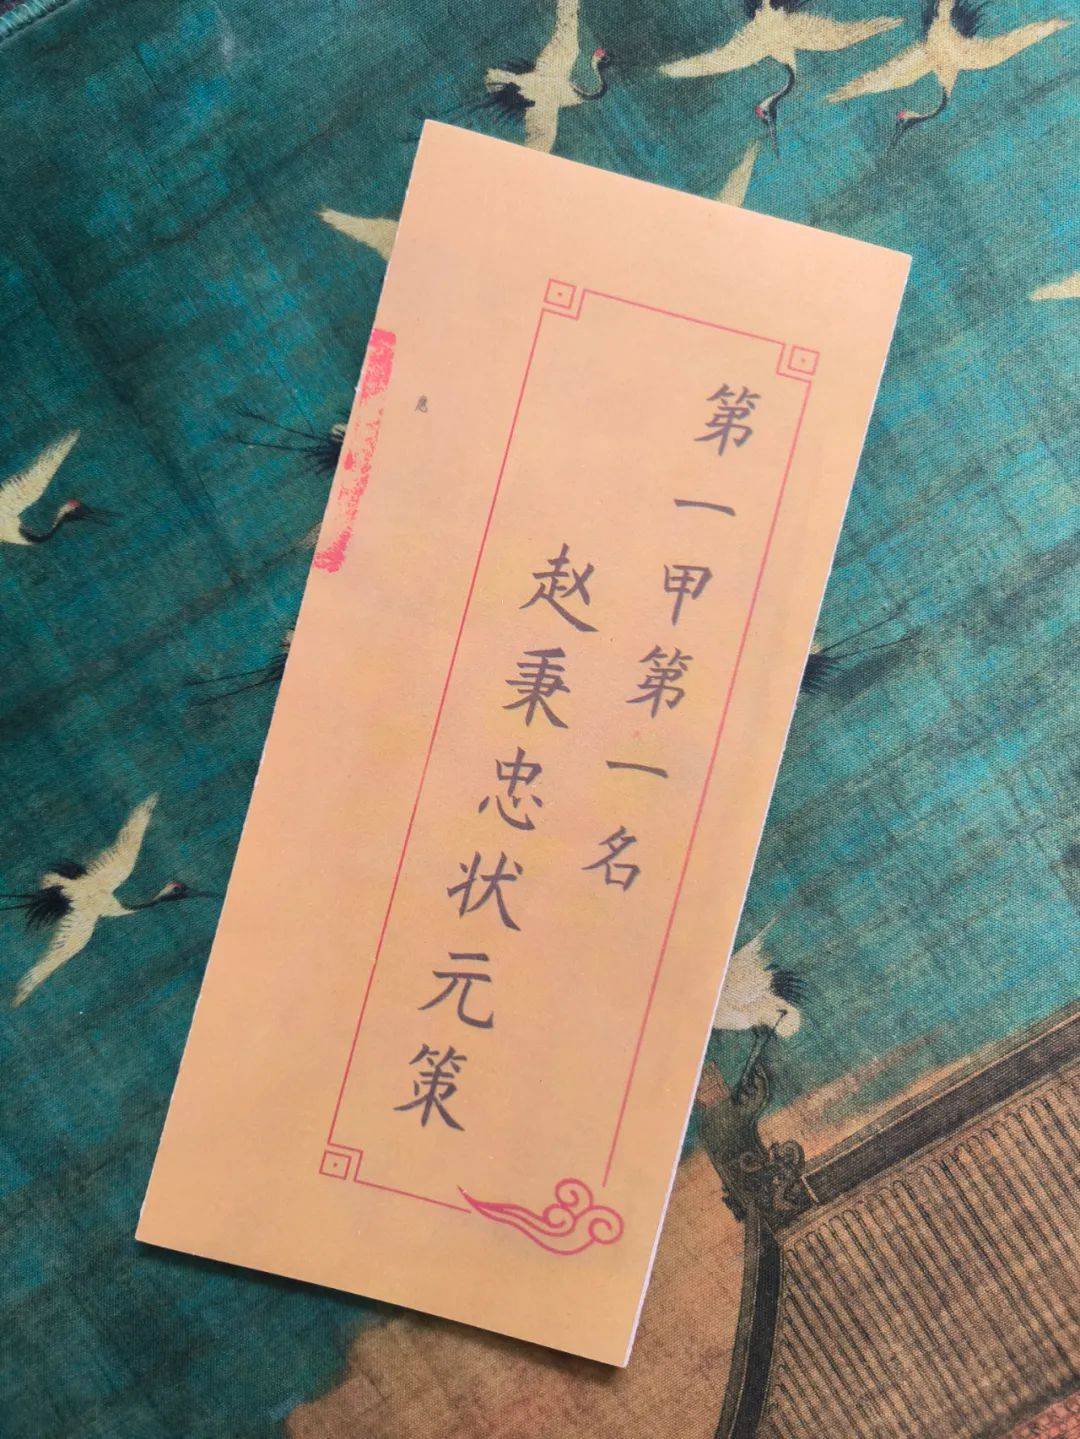 第一甲第一名
赵秉忠状元策